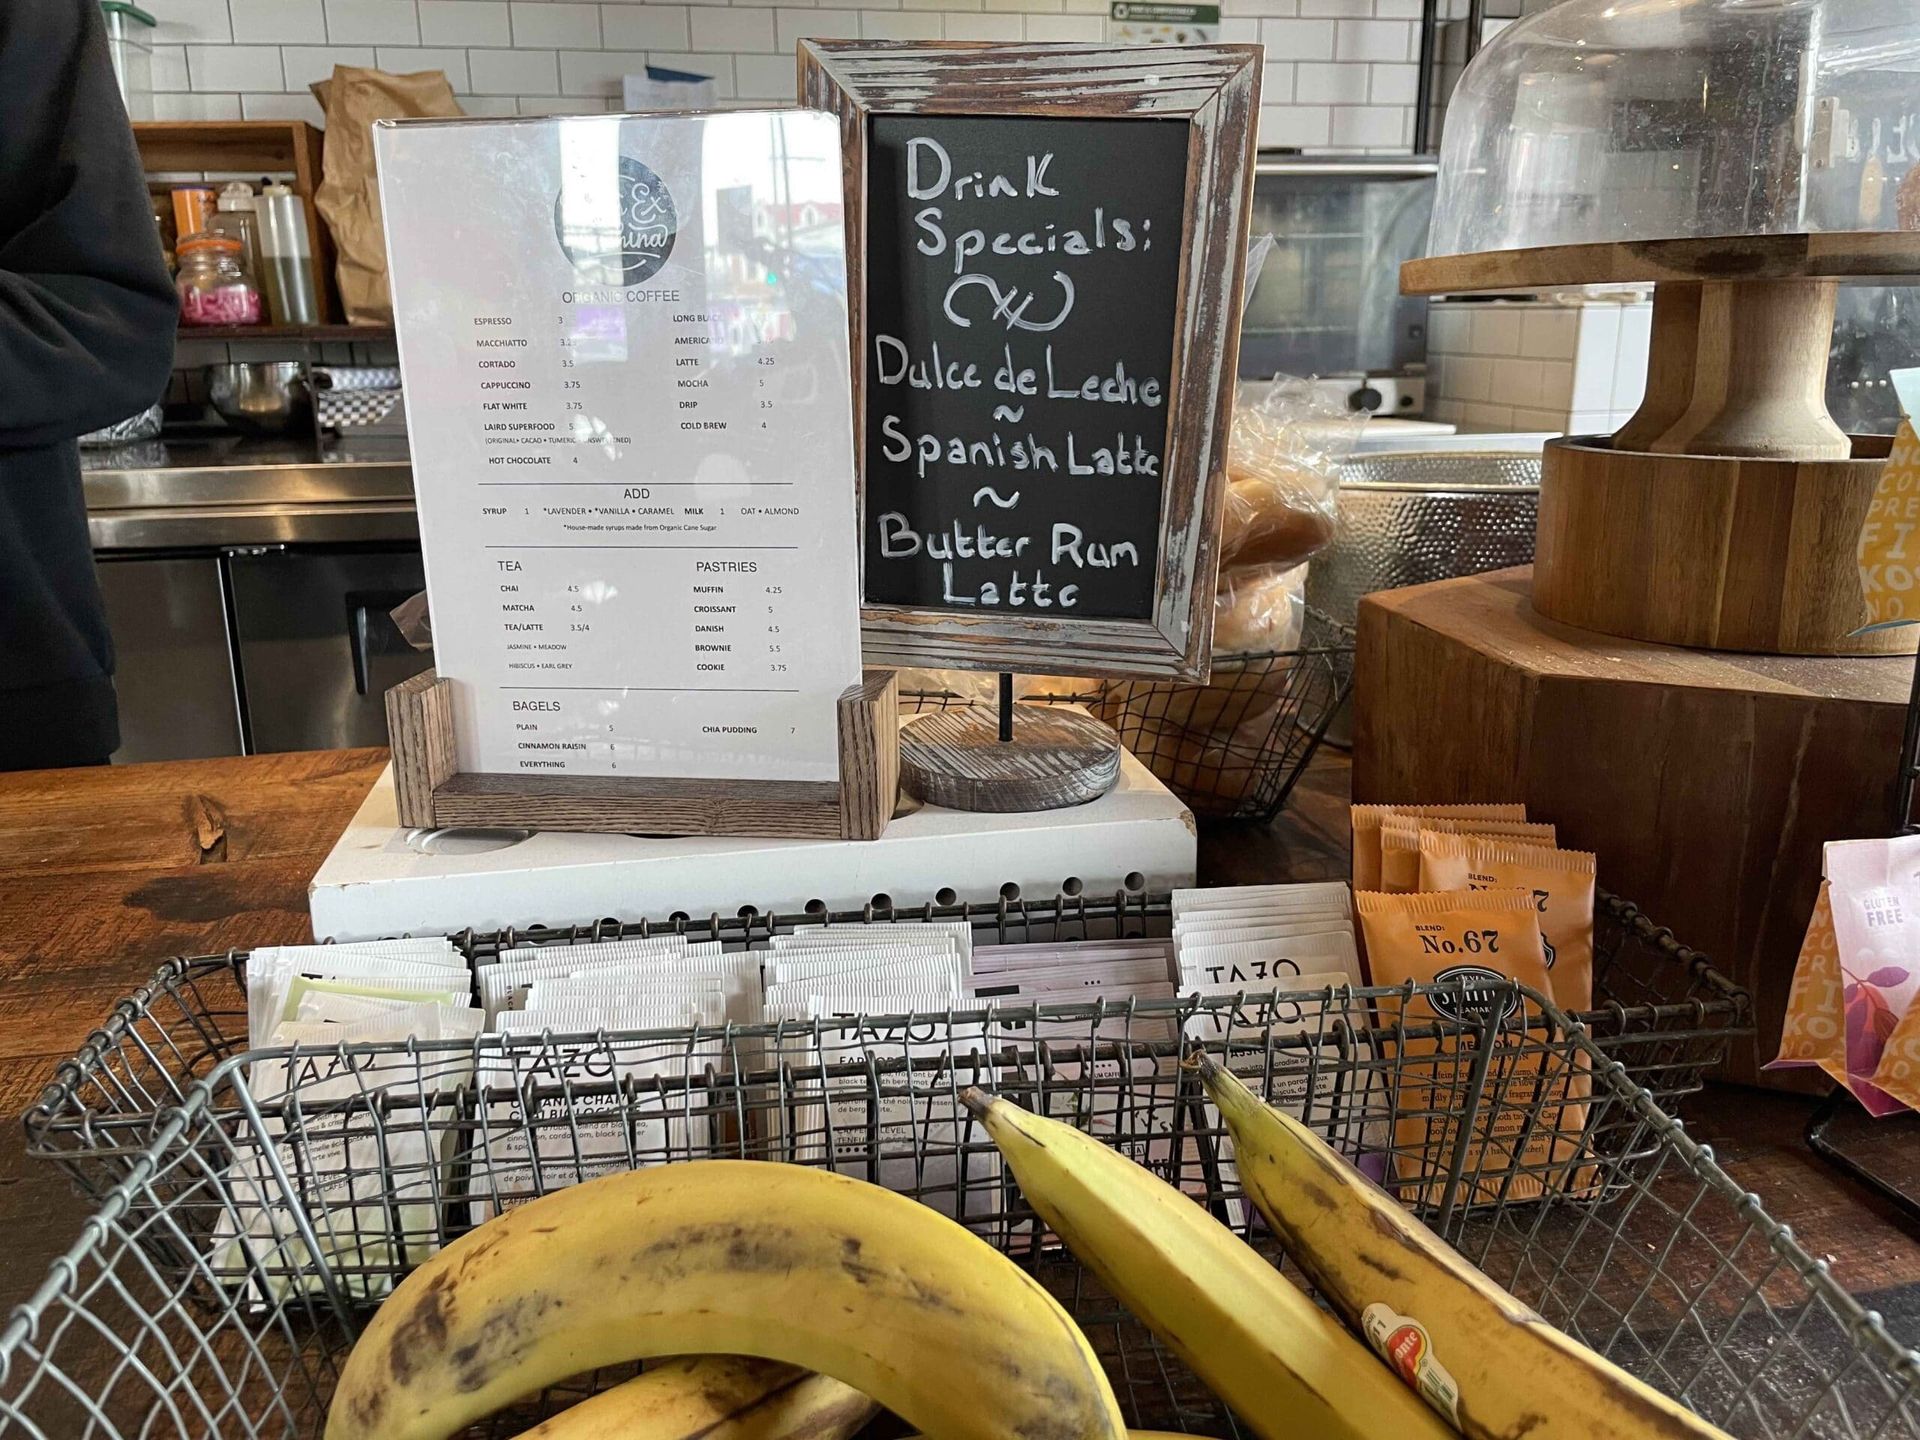 Drink
Specials:
Dulce de Leche
~
Spanish Latte
~
Butter Rum
Latte
ORGANIC COFFEE
ESPRESSO 3
MACCHIATTO
CORTADO 3.5
CAPPUCCINO 3.75
FLAT WHITE 3.75
LAIRD SUPERFOOD
(ORIGINAL• CACAO • TUMERIC •
HOT CHOCOLATE 4
LONG
LATTE 4.25
MOCHA 5
DRIP 3.5
COLD BREW 4
ADD
SYRUP 1 *LAVENDER • *VANILLA • CARAMEL MILK 1 OAT • ALMOND
*House-made syrups made from Organic Cane Sugar
TEA
CHAI 4.5
MATCHA 4.5
TEA/LATTE 3.5/4
JASMINE • MEADOW
HIBISCUS • EARL GREY
PASTRIES
MUFFIN 4.25
CROISSANT 5
DANISH 4.5
BROWNIE 5.5
COOKIE 3.75
BAGELS
PLAIN 5
CINNAMON RAISIN 6
EVERYTHING 6
CHIA PUDDING 7
TAZO
TAZO
TAZO
TAZO
TAZO
BLEND:
BLEND:
No.67
GLUTEN
FREE